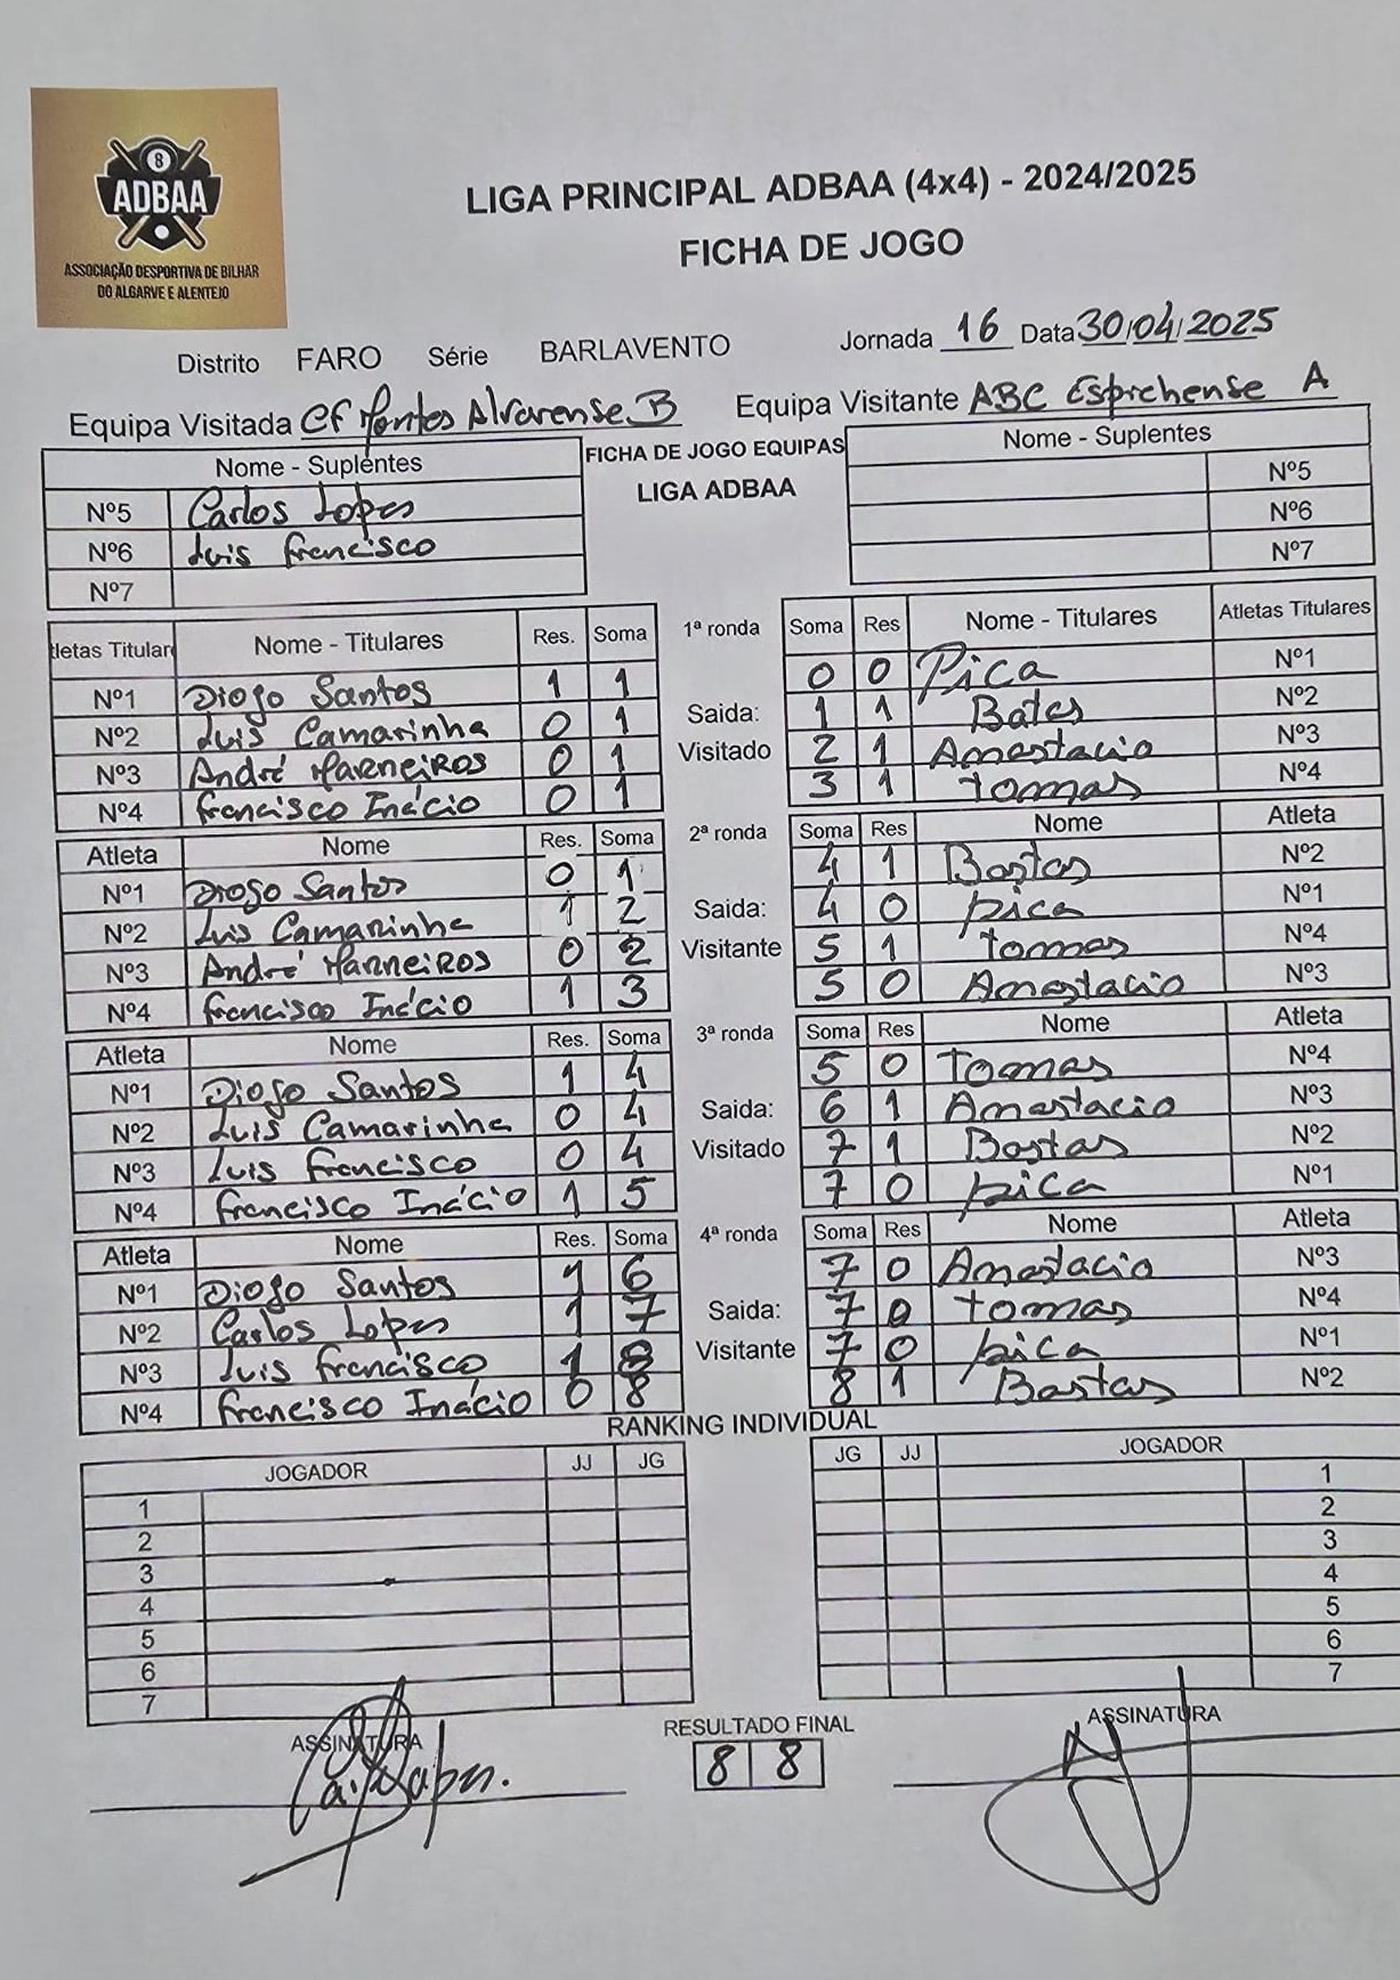 8
ADBAA
ASSOCIAÇÃO DESPORTIVA DE BILHAR
DO ALGARVE E ALENTEJO
LIGA PRINCIPAL ADBAA (4x4) - 2024/2025
FICHA DE JOGO
Distrito FARO Série BARLAVENTO Jornada 16 Data 30/04/2025
Equipa Visitada CF Montes Alvorense B Equipa Visitante ABC Esprehense A
Nome - Suplentes FICHA DE JOGO EQUIPAS Nome - Suplentes
LIGA ADBAA
Nº5 Carlos Lopes Nº5
Nº6 Luis Francisco Nº6
Nº7 Nº7
tletas Titular Nome - Titulares Res. Soma 1ª ronda Soma Res Nome - Titulares Atletas Titulares
Nº1 Diogo Santos 1 1 0 0 Pica Nº1
Nº2 Luis Camarinha 0 1 Saida: 1 1 Batas Nº2
Nº3 André Marneiros 0 1 Visitado 2 1 Anastacio Nº3
Nº4 Francisco Inácio 0 1 3 1 Tomas Nº4
Atleta Nome Res. Soma 2ª ronda Soma Res Nome Atleta
Nº1 Diogo Santos 0 1 4 1 Bastas Nº2
Nº2 Luis Camarinha 1 2 Saida: 4 0 pica Nº1
Nº3 André Marneiros 0 2 Visitante 5 1 Tomas Nº4
Nº4 Francisco Inácio 1 3 5 0 Anastacio Nº3
Atleta Nome Res. Soma 3ª ronda Soma Res Nome Atleta
Nº1 Diogo Santos 1 4 5 0 Tomas Nº4
Nº2 Luis Camarinha 0 4 Saida: 6 1 Anastacio Nº3
Nº3 Luis Francisco 0 4 Visitado 7 1 Bastas Nº2
Nº4 Francisco Inácio 1 5 7 0 pica Nº1
Atleta Nome Res. Soma 4ª ronda Soma Res Nome Atleta
Nº1 Diogo Santos 1 6 7 0 Anastacio Nº3
Nº2 Carlos Lopes 1 7 Saida: 7 0 Tomas Nº4
Nº3 Luis Francisco 1 8 Visitante 7 0 pica Nº1
Nº4 Francisco Inácio 0 8 8 1 Bastas Nº2
RANKING INDIVIDUAL
JOGADOR JJ JG JG JJ JOGADOR
1 1
2 2
3 3
4 4
5 5
6 6
7 7
ASSINATURA RESULTADO FINAL ASSINATURA
8 8